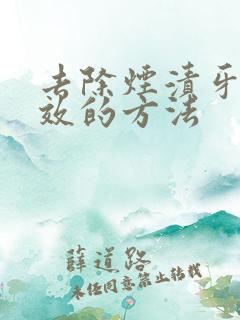 去除煙漬牙
效的方法
薛道路
未经同意禁止转载